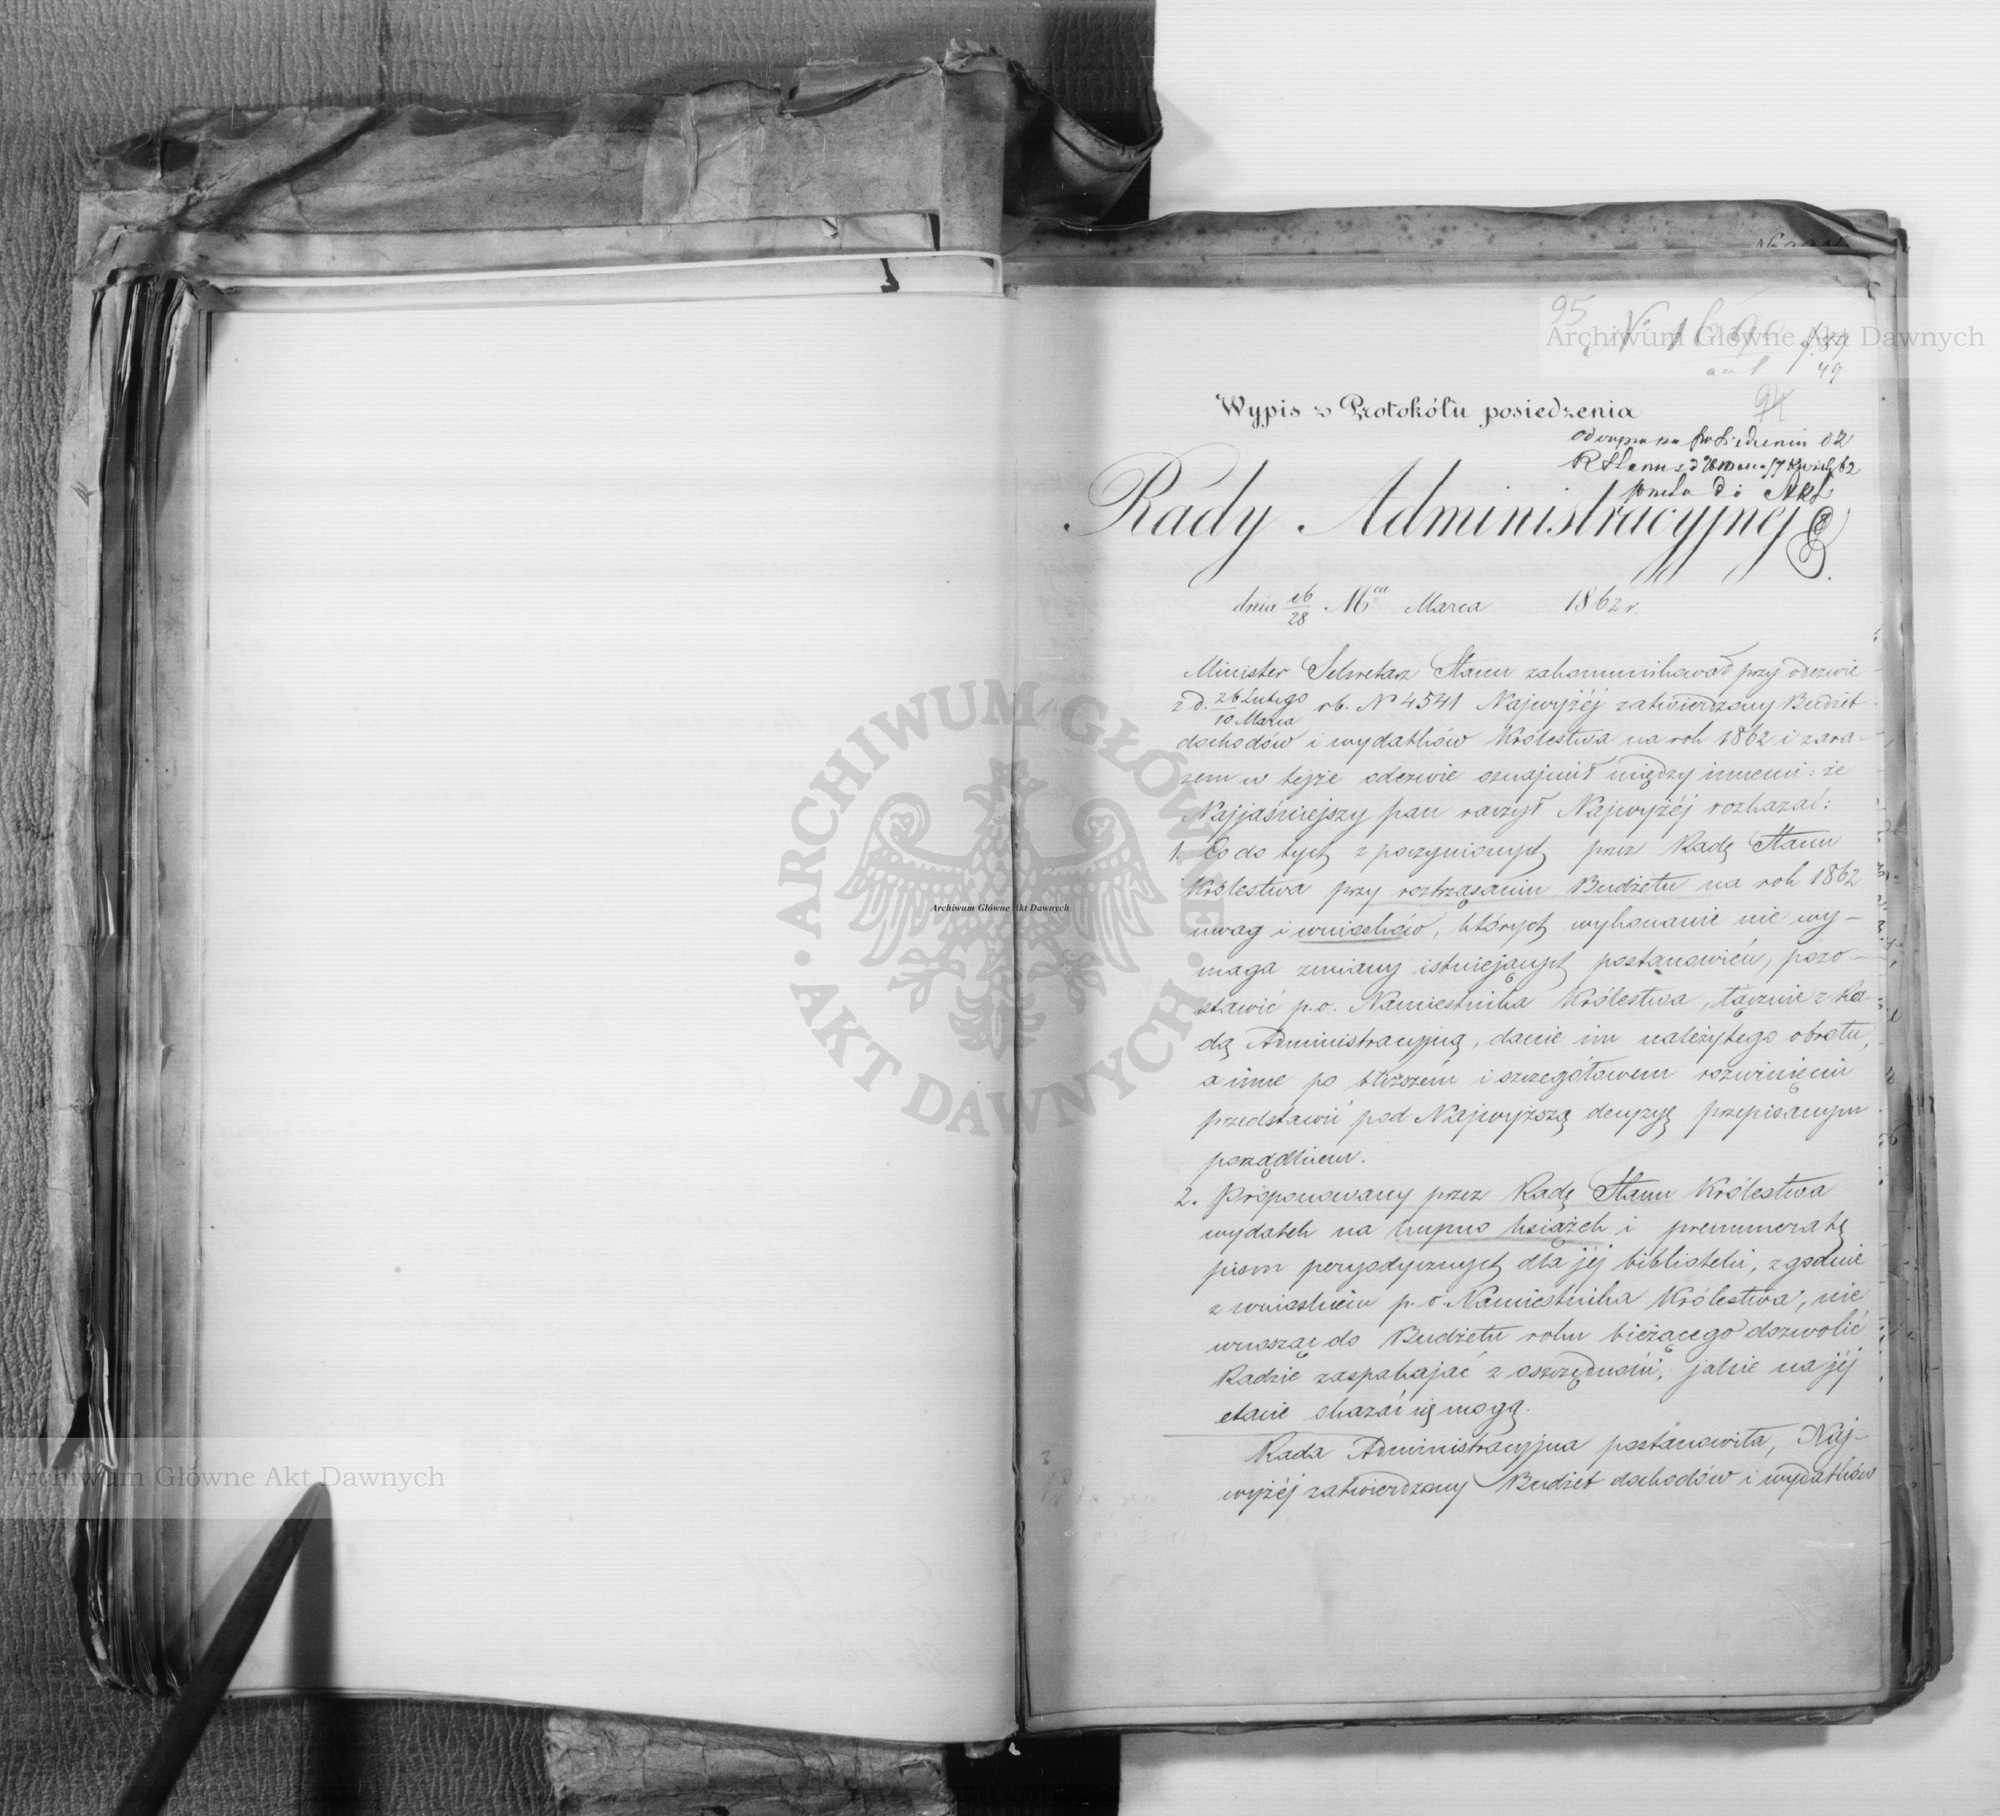 95
Nº
94
49
Wypis z Protokółu posiedzenia
posiedzeniu
RStanu
do Akt
Rady Administracyjnej
dnia 16/28 Mca Marca 1862 r.
Minister Sekretarz Stanu zakommunikował przy odezwie
z d. 26 Lutego/10 Marca rb. Nº 4541 Najwyżéj zatwierdzony Budżet
dochodów i wydatków Królestwa na rok 1862 i zara-
zem w tejże odezwie oznajmił między innemi: że
Najjaśniejszy pan raczył Najwyżéj rozkazać:
1. Co do tych z poczynionych przez Radę Stanu
Królestwa przy roztrząsaniu Budżetu na rok 1862
uwag i wniosków, których wykonanie nie wy-
maga zmiany istniejących postanowień, pozo-
stawić p.o. Namiestnika Królestwa, łącznie z Ra-
dą Administracyjną, danie im należytego obrotu,
a inne po bliższém i szczegółowem rozwinięciu
przedstawić pod Najwyższą decyzyę przepisanym
porządkiem.
2. Proponowany przez Radę Stanu Królestwa
wydatek na kupno książek i prenumeratę
pism peryodycznych dla jéj biblioteki, zgodnie
z wnioskiem p.o. Namiestnika Królestwa, nie
wnosząc do Budżetu roku bieżącego dozwolić
Radzie zaspakajać z oszczędności, jakie na jéj
etacie okazać się mogą.
Rada Administracyjna postanowiła, Naj-
wyżéj zatwierdzony Budżet dochodów i wydatków
Archiwum Główne Akt Dawnych
Archiwum Główne Akt Dawnych
Archiwum Główne Akt Dawnych
ARCHIWUM GŁÓWNE · AKT DAWNYCH ·